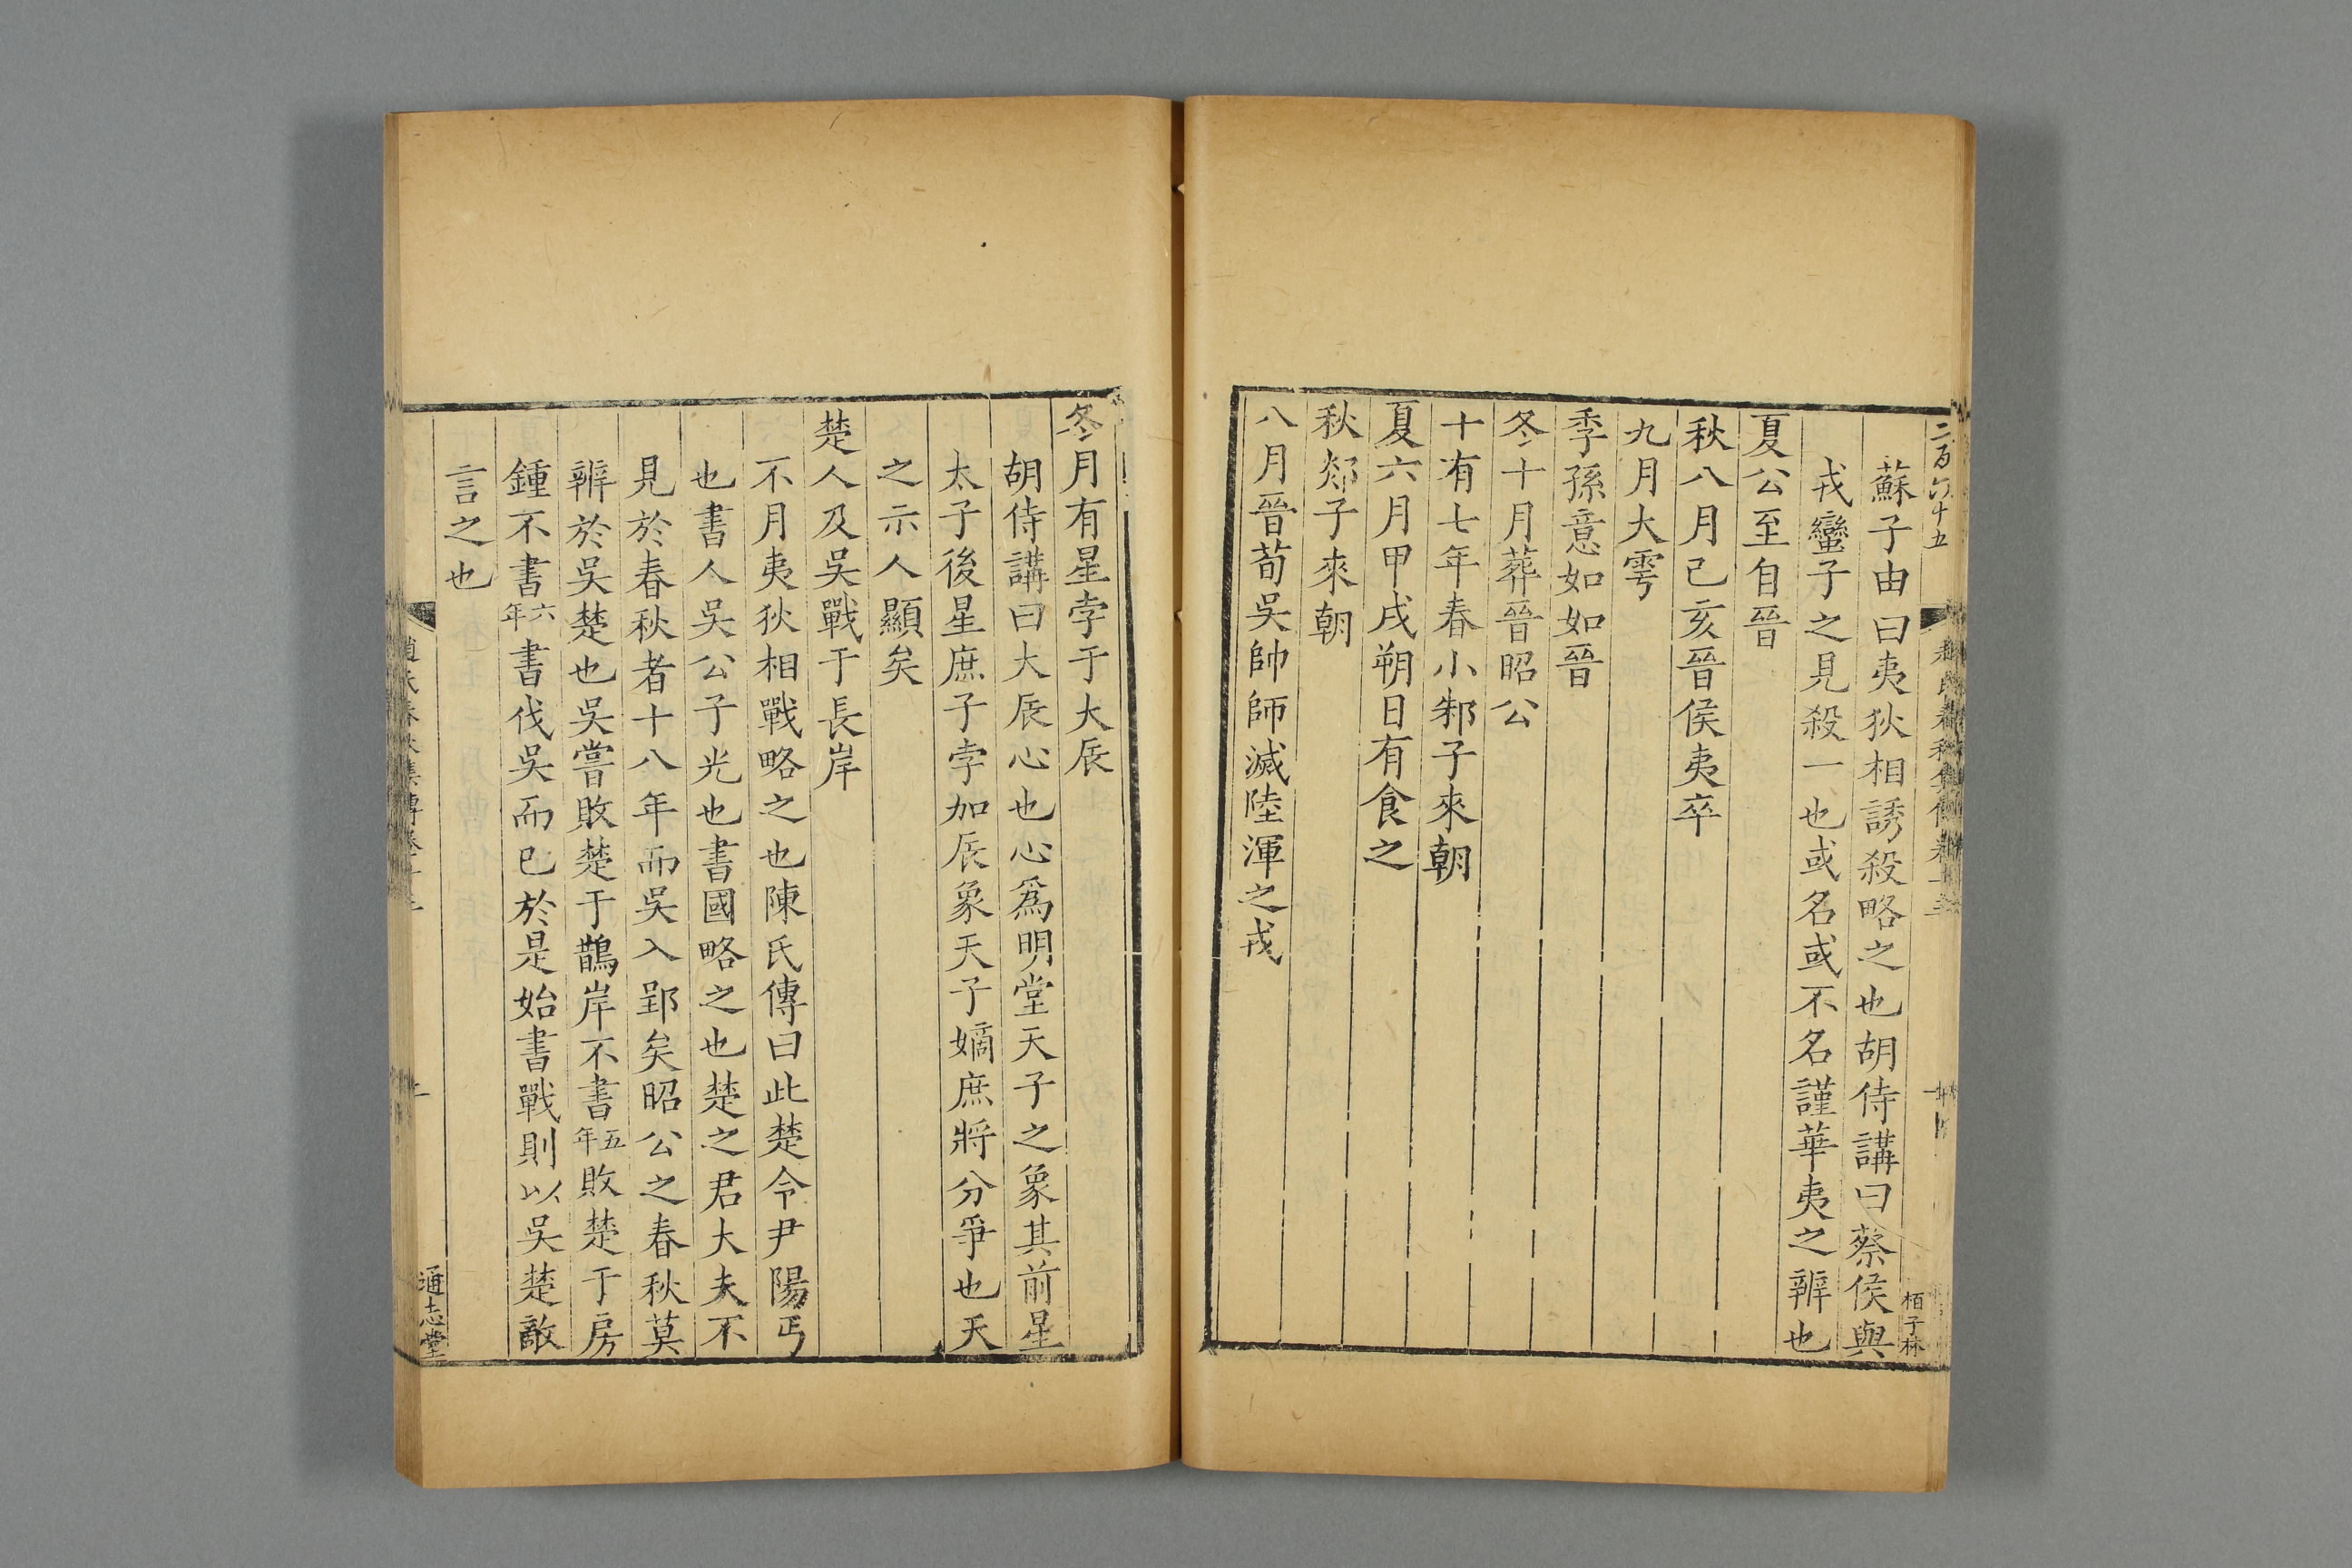 二百六十五
蘇子由曰夷狄相誘殺略之也胡侍講曰蔡侯與
戎蠻子之見殺一也或名或不名謹華夷之辨也
夏公至自晉
秋八月己亥晉侯夷卒
九月大雩
季孫意如如晉
冬十月葬晉昭公
十有七年春小邾子來朝
夏六月甲戌朔日有食之
秋郯子來朝
八月晉荀吳帥師滅陸渾之戎
栢子林
冬月有星孛于大辰
胡侍講曰大辰心也心爲明堂天子之象其前星
太子後星庶子孛加辰象天子嫡庶將分爭也天
之示人顯矣
楚人及吳戰于長岸
不月夷狄相戰略之也陳氏傳曰此楚令尹陽丐
也書人吳公子光也書國略之也楚之君大夫不
見於春秋者十八年而吳入郢矣昭公之春秋莫
辨於吳楚也吳嘗敗楚于鵲岸不書五年敗楚于房
鍾不書六年書伐吳而已於是始書戰則以吳楚敵
言之也
通志堂